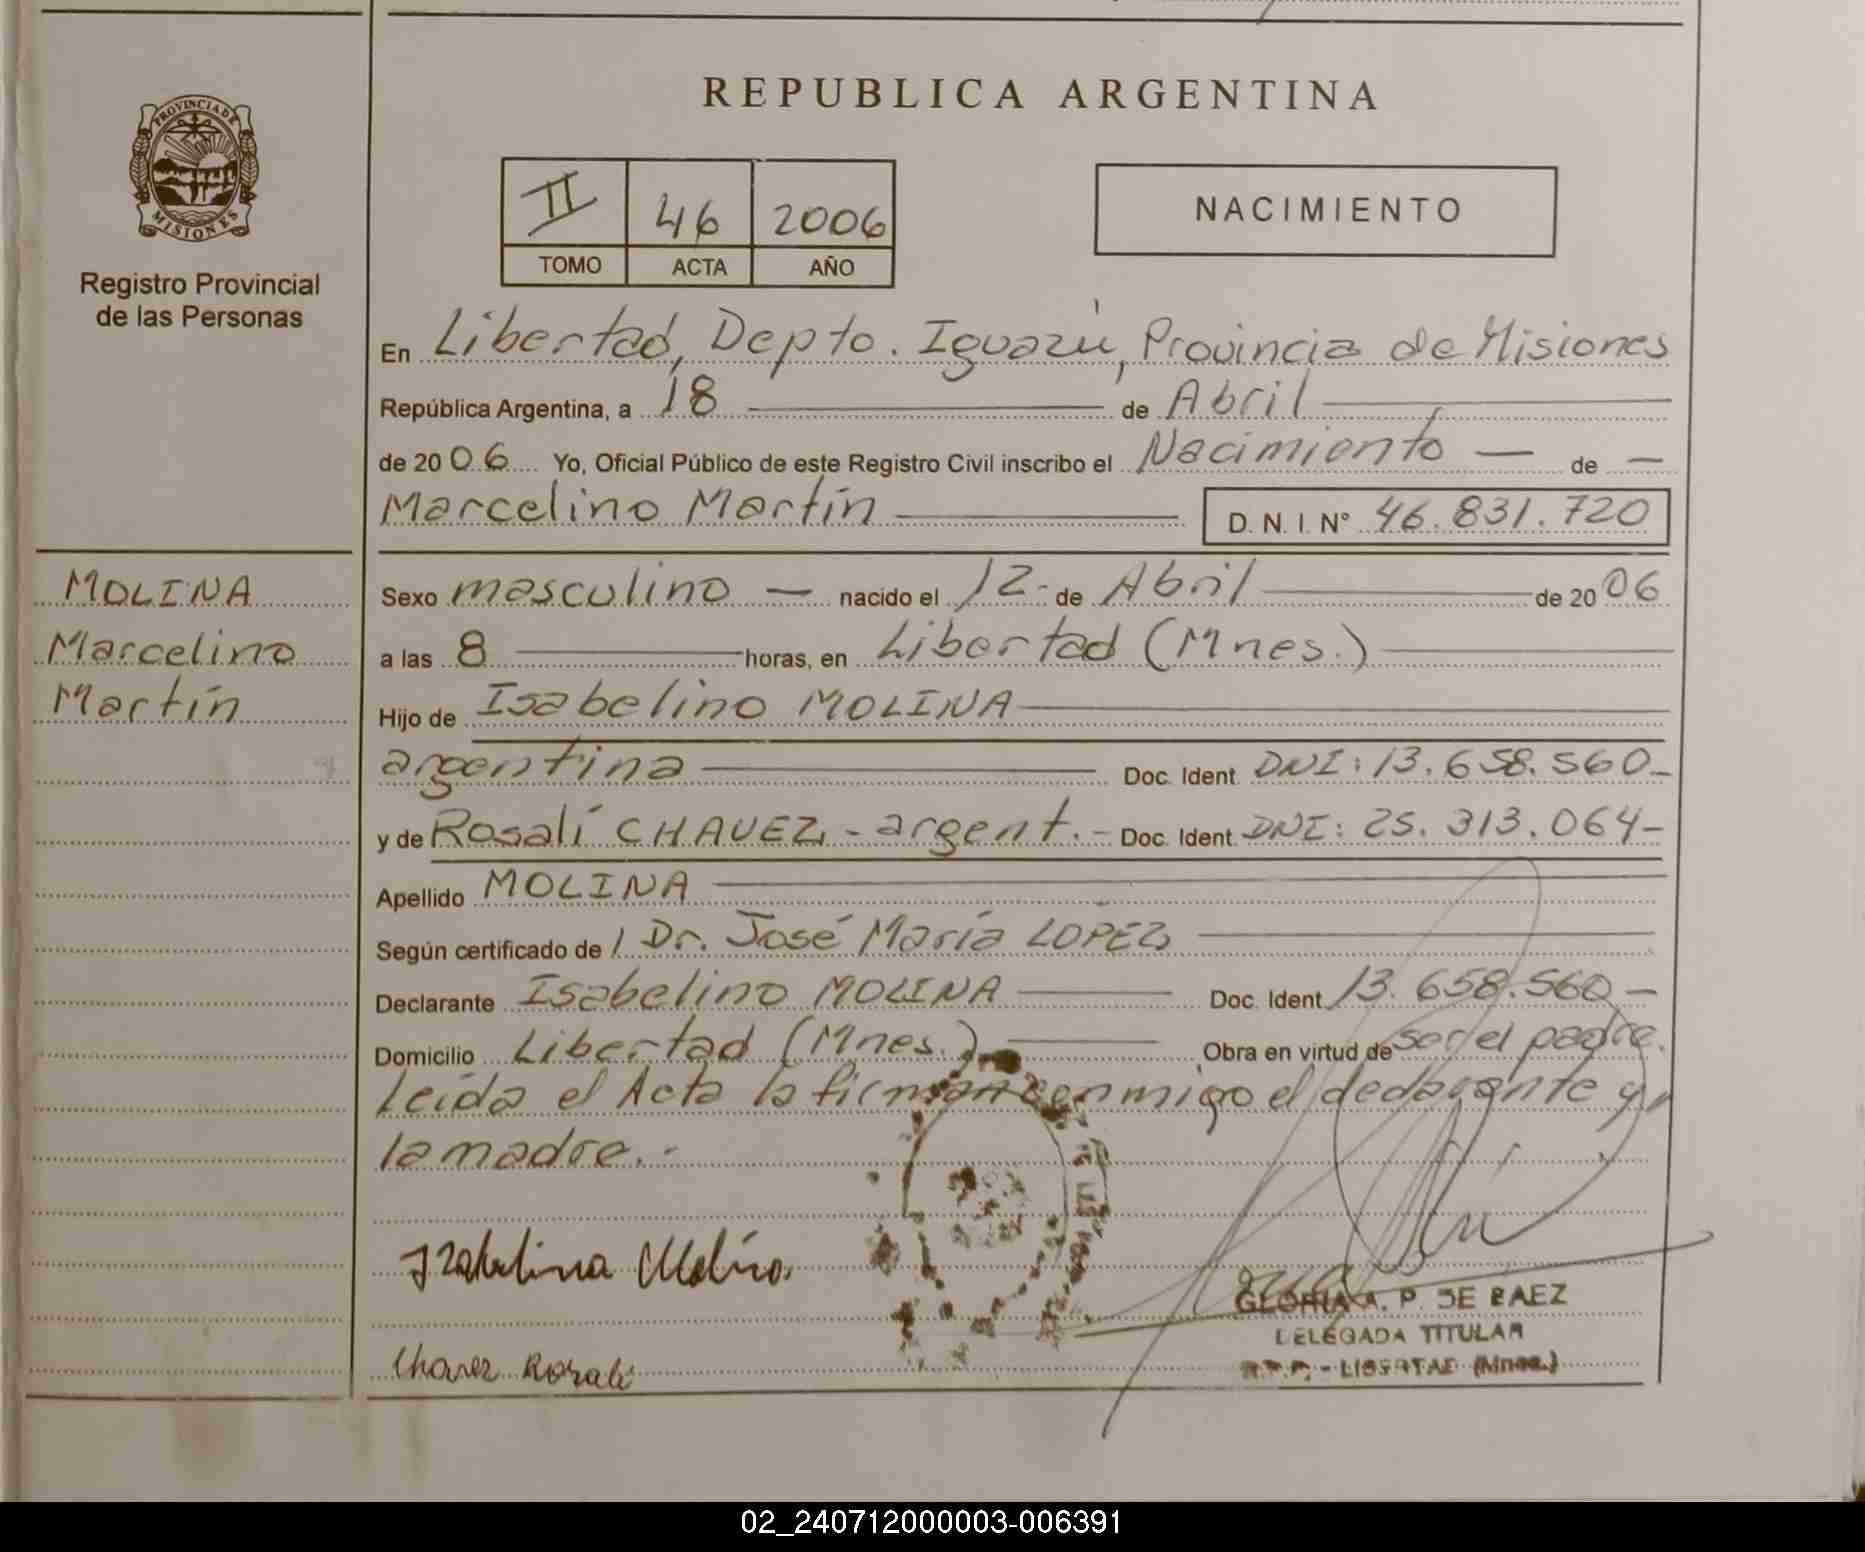 REPUBLICA ARGENTINA
PROVINCIA DE
MISIONES
Registro Provincial
de las Personas
II 46 2006
TOMO ACTA AÑO
NACIMIENTO
En Libertad, Depto. Iguazú, Provincia de Misiones
República Argentina, a 18 — de Abril —
de 2006 Yo, Oficial Público de este Registro Civil inscribo el Nacimiento — de —
Marcelino Martín — D. N. I. N° 46.831.720
MOLINA
Marcelino
Martín
Sexo masculino — nacido el 12- de Abril — de 2006
a las 8 — horas, en Libertad (Mnes.) —
Hijo de Isabelino MOLINA —
argentina — Doc. Ident. DNI: 13.658.560-
y de Rosalí CHAVEZ - argent. - Doc. Ident. DNI: 25.313.064-
Apellido MOLINA —
Según certificado de Dr. José María LOPEZ —
Declarante Isabelino MOLINA — Doc. Ident 13.658.560 -
Domicilio Libertad (Mnes.) — Obra en virtud de ser el padre.
Leída el Acta la firman conmigo el declarante y
la madre.-
Izabelino Molina
Chavez Rosali
GLORIA A. P. DE BAEZ
DELEGADA TITULAR
R.P.P. - LIBERTAD (Mnes.)
02_240712000003-006391